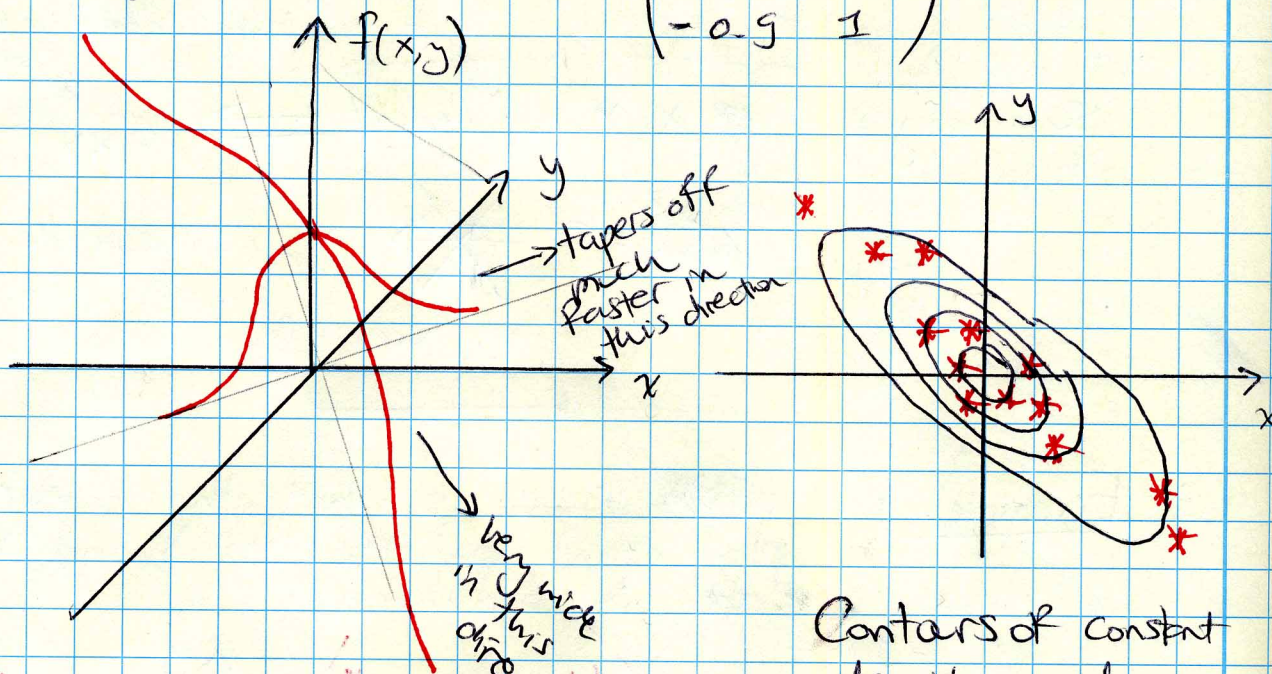 f(x,y)
(-0.9 1)
y
→ tapers off
much
faster in
this direction
x
very wide
in this
y
x
Contours of constant